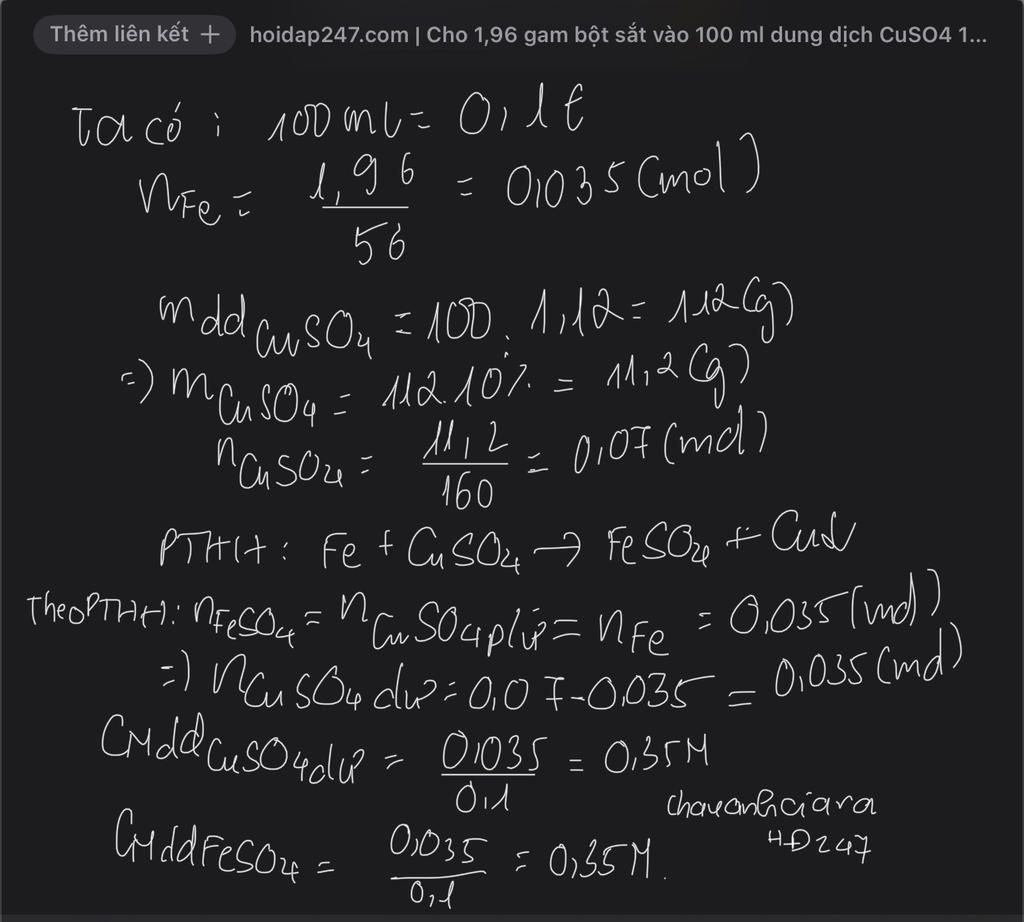 Thêm liên kết + hoidap247.com | Cho 1,96 gam bột sắt vào 100 ml dung dịch CuSO4 1...
Ta có : 100 ml = 0,1 l
nFe = 1,96/56 = 0,035 (mol)
mdd CuSO4 = 100 . 1,12 = 112 (g)
=) mCuSO4 = 112.10% = 11,2 (g)
nCuSO4 = 11,2/160 = 0,07 (mol)
PTHH : Fe + CuSO4 → FeSO4 + Cu↓
Theo PTHH : nFeSO4 = nCuSO4 p/ư = nFe = 0,035 (mol)
=) nCuSO4 dư = 0,07 - 0,035 = 0,035 (mol)
CMdd CuSO4 dư = 0,035/0,1 = 0,35M
chauanhciara
HĐ247
CMdd FeSO4 = 0,035/0,1 = 0,35M.